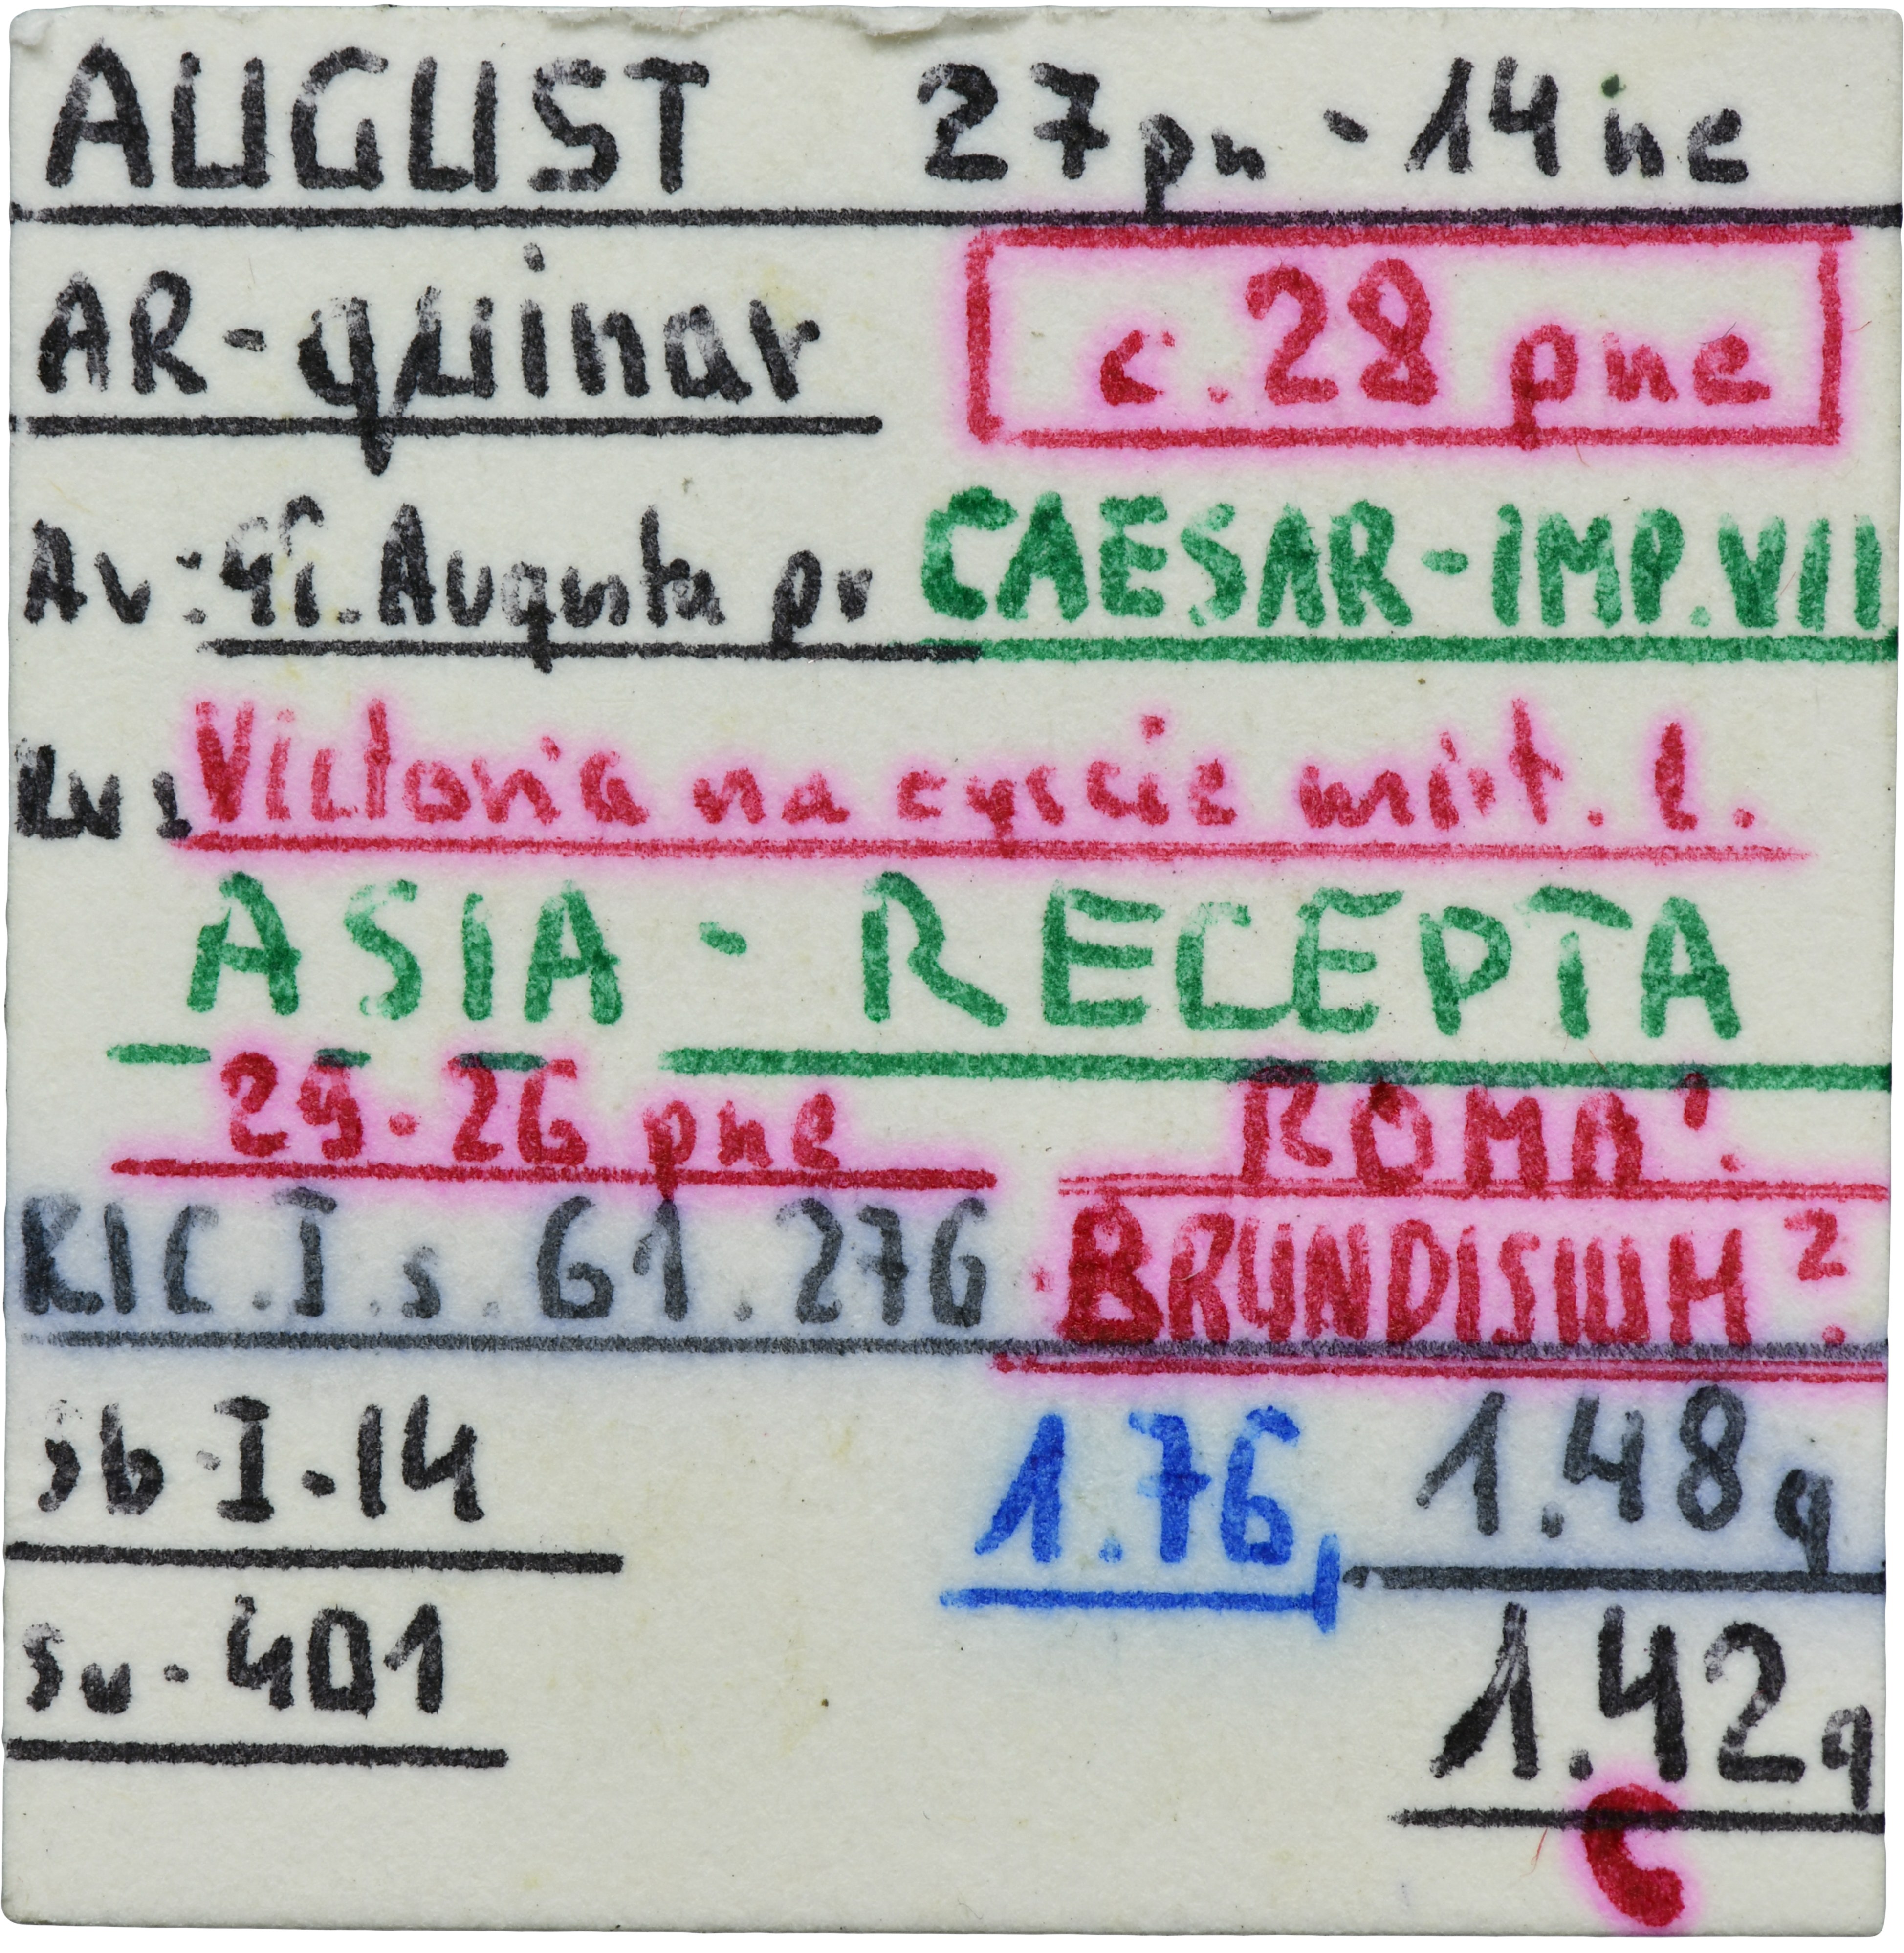 AUGUST 27 pn - 14 ne
AR - quinar c. 28 pne
Av: Gł. Augusta pr CAESAR - IMP. VII
Rv: Victoria na cyscie mist. l.
ASIA - RECEPTA
29 - 26 pne ROMA?
RIC. I. s. 61. 276 BRUNDISIUM?
Sb - I - 14 1.76 1.48g
Su - 401 1.42g